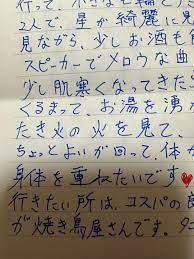 行って、小さな
2人で、星が綺麗に
見ながら、少しお酒も
スピーカーでメロウな曲
少し肌寒くなってきた
くるまって、お湯を湧
たき火の火を見て、
ちょっとよいが回って、体か
身体を重ねたいです♥
行きたい所は、コスパの良
が焼き鳥屋さんです。タニ